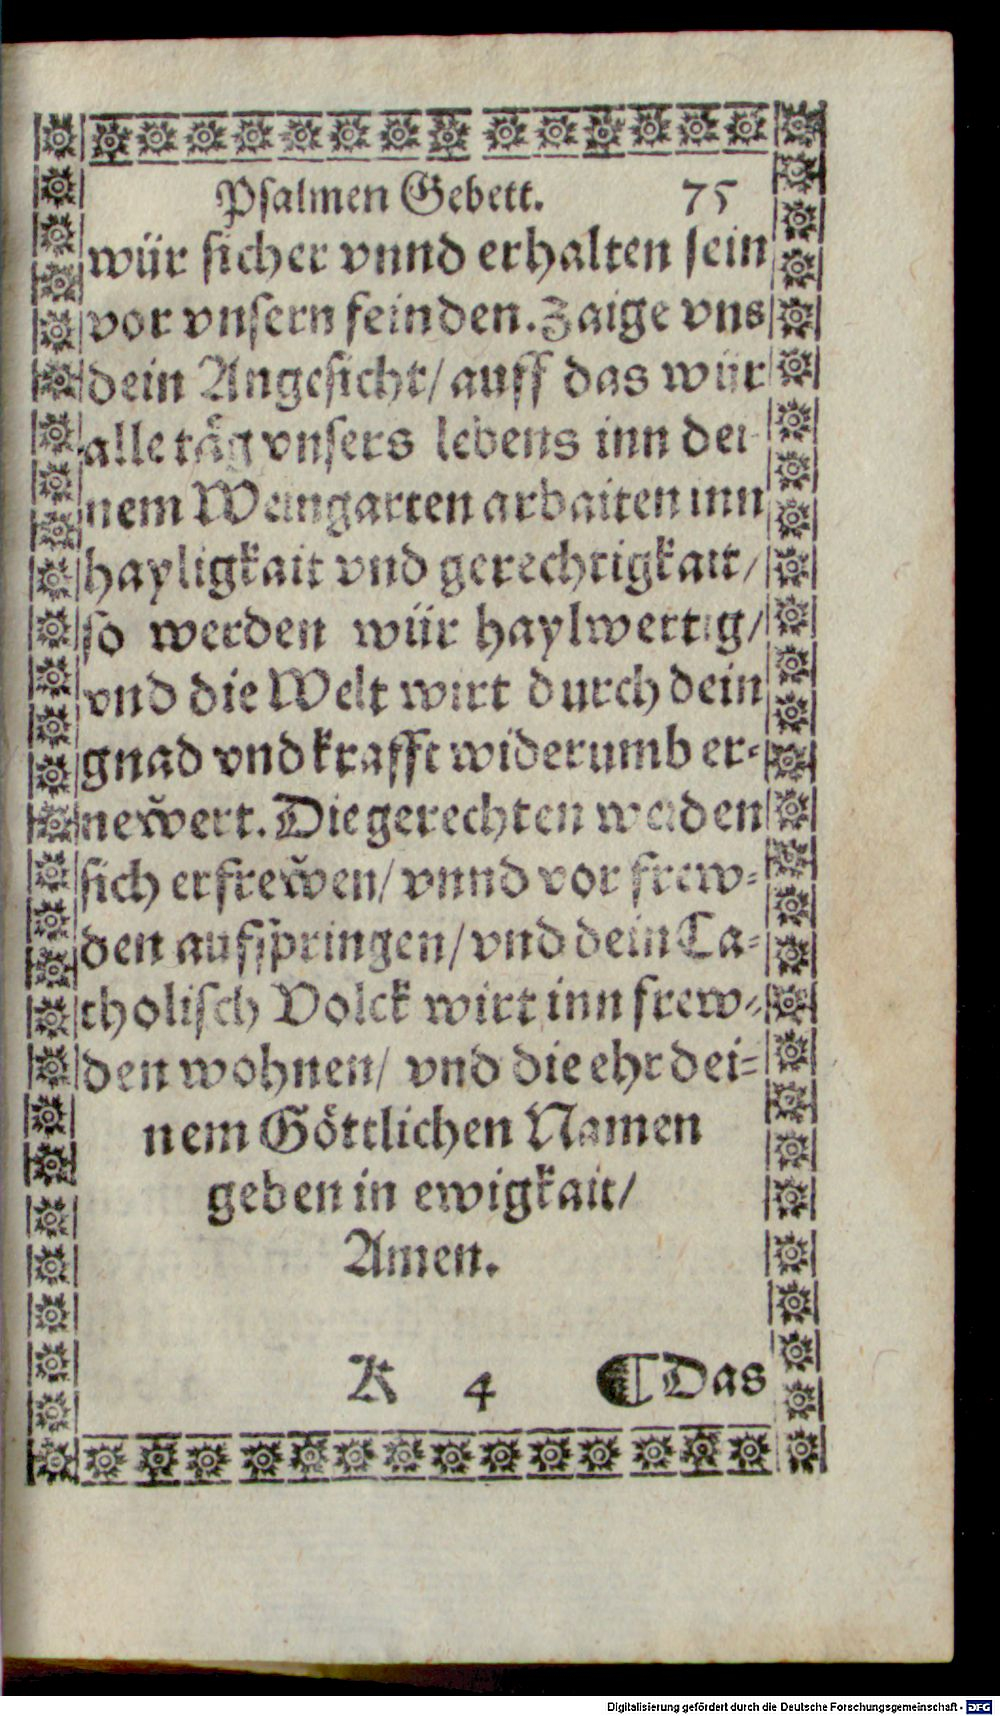 Psalmen Gebett. 75
wür sicher vnnd erhalten sein
vor vnsern feinden. Zaige vns
dein Angesicht/ auff das wür
alle täg vnsers lebens inn dei-
nem Weingarten arbaiten inn
hayligkait vnd gerechtigkait/
so werden wür haylwertig/
vnd die Welt wirt durch dein
gnad vnd krafft widerumb er-
new̆ert. Die gerechten werden
sich erfrew̆en/ vnnd vor frew-
den aufspringen/ vnd dein Ca-
tholisch Volck wirt inn frew-
den wohnen/ vnd die ehr dei-
nem Göttlichen Namen
geben in ewigkait/
Amen.
K 4 ¶ Das
Digitalisierung gefördert durch die Deutsche Forschungsgemeinschaft - DFG